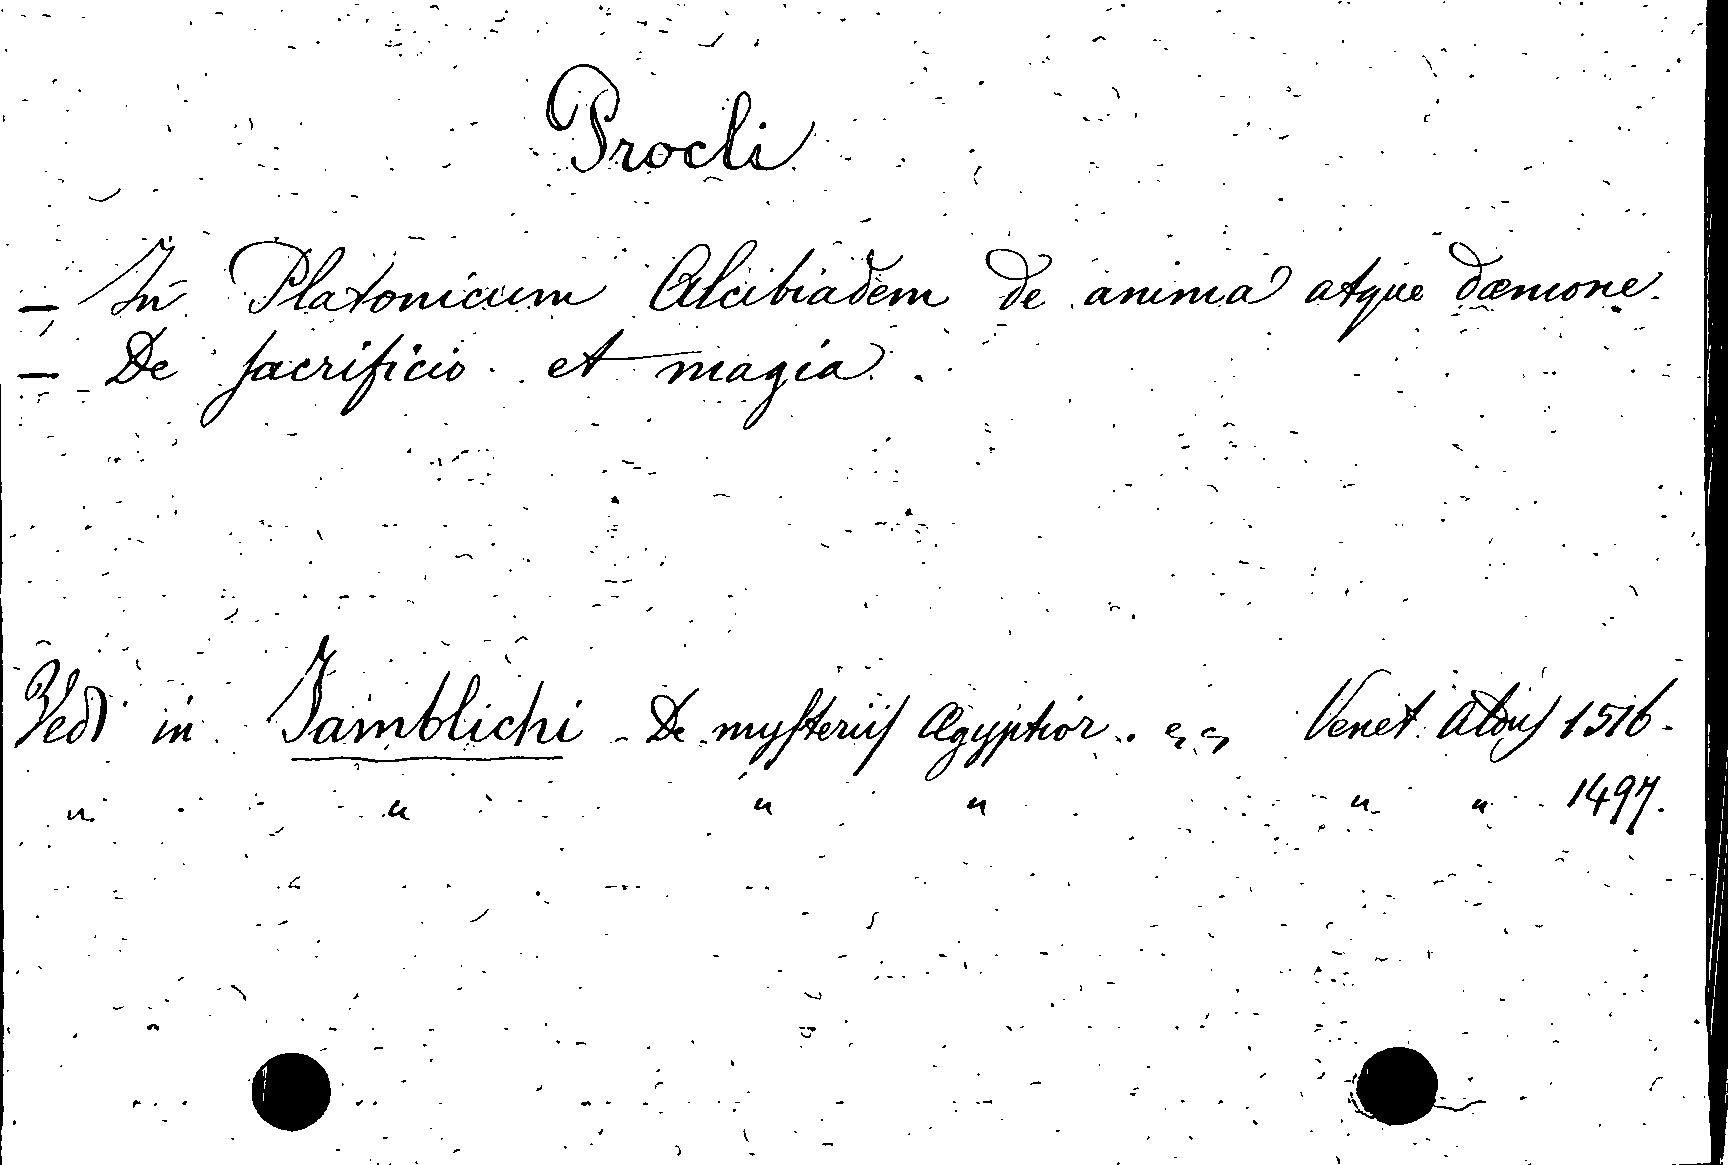 Procli
— In Platonicum Alcibiadem de anima atque dæmone.
— De sacrificio et magia.
Vedi in Iamblichi - De mysteriis Ægyptior. Venet. 1516.
" " " " " " 1497.